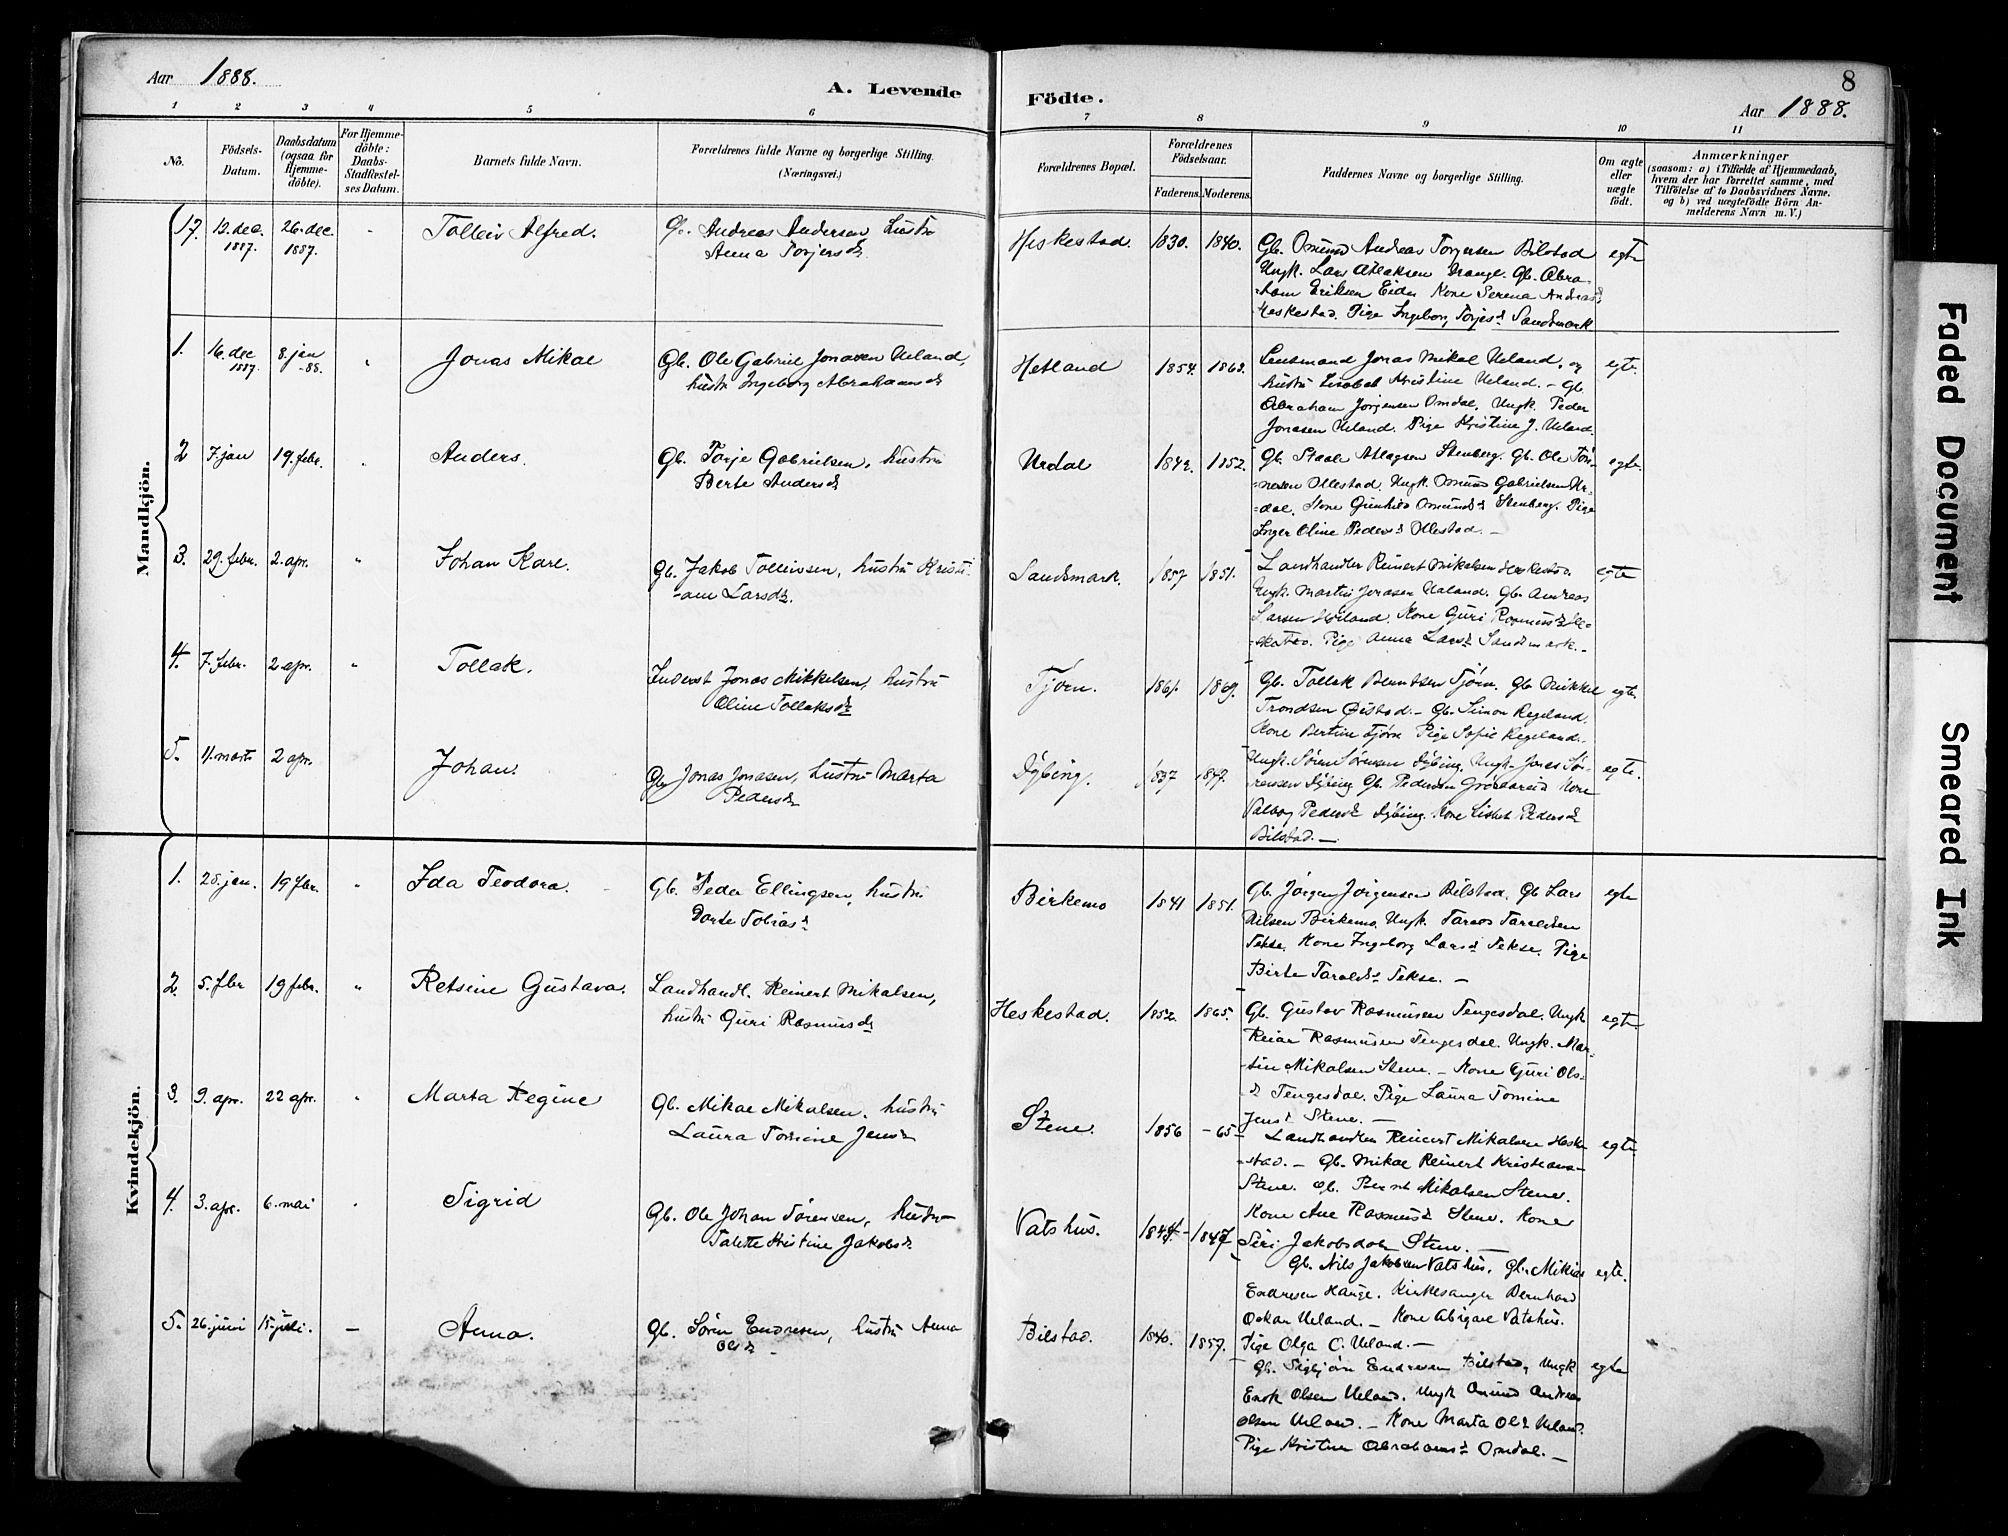 8
Aar 1888.
A. Levende
Födte.
Aar 1888.
1 2 3 4 5 6 7 8 9 10 11
No.
Födsels-Datum.
Daabsdatum (ogsaa for Hjemme-döbte).
For Hjemme-döbte: Daabs-Stadfestel-ses Datum.
Barnets fulde Navn.
Forældrenes fulde Navne og borgerlige Stilling.
(Næringsvei.)
Forældrenes Bopæl.
Forældrenes Födselsaar.
Faderens. Moderens.
Faddernes Navne og borgerlige Stilling.
Om ægte eller uægte födt.
Anmærkninger
(saasom: a) i Tilfælde af Hjemmedaab, hvem der har forrettet samme, med Tilföielse af to Daabsvidners Navne. og b) ved uægtefödte Börn An-melderens Navn m. V.)
Mandkjön.
17. 12. dec. 1887. 26. dec. 1887. Tolleiv Alfred. Gb. Andreas Andersen hustru
Anna Torjersd.
Heskestad. 1830. 1840. Gb. Omund Andreas Torgersen Bilstad egte
Ungk. Lars Atlaksen Gb. Abra-
-ham Eriksen Eide Kone Serena Andreasd
Heskestad. Pige Ingeborg Torjesd Sandsmark
1. 16. dec 1887. 8. jan -88. " Jonas Mikal Gb. Ole Gabriel Jonasen Ueland,
hustru Ingeborg Abrahamsd
Hetland 1854. 1862. Lensmand Jonas Mikal Ueland, og egte.
hustru Lisabet Kristine Ueland. - Gb.
Abraham Jörgensen Omdal. Ungk. Peder
Jonasen Ueland. Pige Kristine J. Ueland.
2 7. jan 19. febr. " Anders. Gb. Torje Gabrielsen, hustru
Berte Andersd
Urdal 1842. 1852. Gb. Staale Atlagsen Stenberg. Gb. Ole Tön- egte.
-nesen Ollestad. Ungk. Omund Gabrielsen Ur-
-dal. Kone Gunhild Omundsd Stenberg. Pige
Inger Oline Pedersd Ollestad. -
3. 29. febr. 2. apr. " Johan Karl. Gb. Jakob Tolleivsen, hustru Kristi-
-ane Larsd.
Sandsmark. 1857 1851. Landhandler Reinert Mikalsen Heskestad. egte
Ungk. Martin Jonasen Ualand. Gb. Andreas
Larsen Kone Guri Rasmusd He-
-skestad. Pige Anna Larsd Sandsmark. -
4. 7. febr. 2 apr. " Tollak. Inderst Jonas Mikkelsen, hustru
Oline Tollaksd
Tjörn. 1861. 1869. Gb. Tollak Berntsen Tjörn. Gb Mikkel egte.
Trondsen Östad. - Gb. Simon Regeland.
Kone Bertine Tjörn Pige Sofie Regeland.
5. 11. marts 2 apr. Johan. Gb. Jonas Jonasen, hustru Marta
Pedersd
Dybing. 1837 1847. Ungk. Sören Sörensen Dybing. Ungk. Jonas Sö- egte.
rensen Dybing Gb. Pedersen Kone
Valborg Pedersd Dybing. Kone Lisbet Pedersd
Bilstad. -
Kvindekjön.
1. 25. jan. 19 febr. " Ida Teodora. Gb. Peder Ellingsen, hustru
Dorte Tobiasd
Birkemo 1841 1851. Gb. Jörgen Jörgensen Bilstad. Gb Lars egte
Nilsen Birkemo. Ungk. Tarald Taraldsen
Tekse. Kone Ingeborg Larsd Tekse. Pige
Birte Taraldsd Tekse. -
2. 5. febr 19 febr. " Retsine Gustava. Landhandl. Reinert Mikalsen,
hustru Guri Rasmusd
Heskestad. 1852. 1865. Gb. Gustav Rasmusen Tengesdal. Ungk egte
Reiar Rasmusen Tengesdal. Ungk. Mar-
-tin Mikalsen Stene. - Kone Guri Ols-
d Tengesdal. Pige Laura Tomine
Jensd Stene. -
3. 9. apr. 22 apr. " Marta Regine Gb. Mikal Mikalsen, hustru
Laura Tomine Jensd
Stene. 1856 - 65 - Landhandler Reinert Mikalsen Heske- egte
-stad. - Gb. Mikal Reinert Kristians-
Stene. Gb. Bernt Mikalsen Stene.
Kone Ane Rasmusd Stene. Kone
Siri Jakobsdatr Stene. -
4. 3. apr. 6. mai " Sigrid Gb. Ole Johan Sörensen, hustru
Talette Kristine Jakobsd
Vatshus. 1844. - 1847 Gb. Nils Jakobsen Vatshus. Gb. Mikias egte.
Endresen Hauge. Kirkesanger Bernhard
Oskar Ueland. - Kone Abigael Vatshus.
Pige Olga O. Ueland. -
5. 26. juni 15. juli. - Anna. Gb. Sören Endresen, hustru Anna
Olsd -
Bilstad. 1840. 1857. Gb. Sigbjörn Endresen Bilstad, Ungk egte
Enok Olsen Ueland. Ungk Omund Andreas
Olsen Ueland. - Kone Marta Olsd Ueland.
Pige Kristine Abrahamsd Omdal. -
Faded Document
Smeared Ink